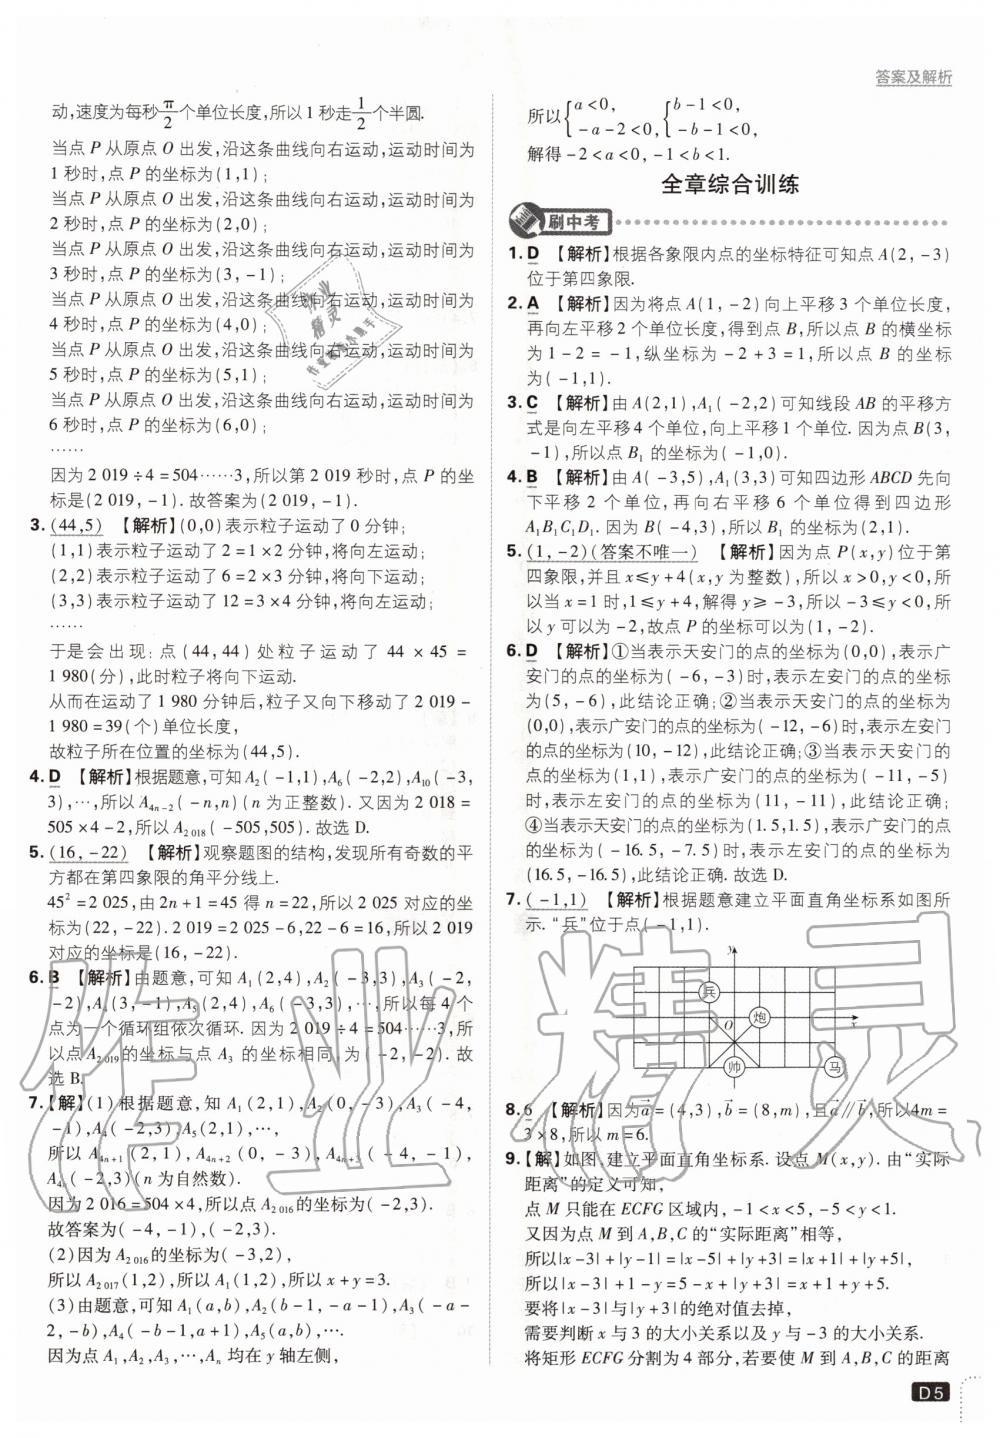 答案及解析
动,速度为每秒π/2个单位长度,所以1秒走1/2个半圆.
当点 P 从原点 O 出发,沿这条曲线向右运动,运动时间为
1秒时,点 P 的坐标为(1,1);
当点 P 从原点 O 出发,沿这条曲线向右运动,运动时间为
2秒时,点 P 的坐标为(2,0);
当点 P 从原点 O 出发,沿这条曲线向右运动,运动时间为
3秒时,点 P 的坐标为(3,-1);
当点 P 从原点 O 出发,沿这条曲线向右运动,运动时间为
4秒时,点 P 的坐标为(4,0);
当点 P 从原点 O 出发,沿这条曲线向右运动,运动时间为
5秒时,点 P 的坐标为(5,1);
当点 P 从原点 O 出发,沿这条曲线向右运动,运动时间为
6秒时,点 P 的坐标为(6,0);
……
因为2 019÷4=504……3,所以第2 019秒时,点 P 的坐
标是(2 019,-1).故答案为(2 019,-1).
3. (44,5) 【解析】(0,0)表示粒子运动了0分钟;
(1,1)表示粒子运动了2=1×2分钟,将向左运动;
(2,2)表示粒子运动了6=2×3分钟,将向下运动;
(3,3)表示粒子运动了12=3×4分钟,将向左运动;
……
于是会出现:点(44,44)处粒子运动了44×45=
1 980(分),此时粒子将向下运动.
从而在运动了1 980分钟后,粒子又向下移动了2 019-
1 980=39(个)单位长度,
故粒子所在位置的坐标为(44,5).
4. D 【解析】根据题意,可知A₂(-1,1),A₆(-2,2),A₁₀(-3,
3),…,所以A₄ₙ₋₂(-n,n)(n为正整数).又因为2 018=
505×4-2,所以A₂ ₀₁₈(-505,505).故选D.
5. (16,-22) 【解析】观察题图的结构,发现所有奇数的平
方都在第四象限的角平分线上.
45²=2 025,由2n+1=45得n=22,所以2 025对应的坐
标为(22,-22).2 019=2 025-6,22-6=16,所以2 019
对应的坐标是(16,-22).
6. B 【解析】由题意,可知A₁(2,4),A₂(-3,3),A₃(-2,
-2),A₄(3,-1),A₅(2,4),A₆(-3,3),…,所以每4个
点为一个循环组依次循环.因为2 019÷4=504……3,所
以点A₂ ₀₁₉的坐标与点A₃的坐标相同,为(-2,-2).故
选B.
7.【解】(1)根据题意,知A₁(2,1),A₂(0,-3),A₃(-4,
-1),A₄(-2,3),A₅(2,1),…,
所以A₄ₙ₊₁(2,1),A₄ₙ₊₂(0,-3),A₄ₙ₊₃(-4,-1),
A₄ₙ(-2,3)(n为自然数).
因为2 016=504×4,所以点A₂ ₀₁₆的坐标为(-2,3).
故答案为(-4,-1),(-2,3).
(2)因为A₂ ₀₁₆的坐标为(-3,2),
所以A₂ ₀₁₇(1,2),所以A₁(1,2),所以x+y=3.
(3)由题意,可知A₁(a,b),A₂(b-1,-a-1),A₃(-a-
2,-b),A₄(-b-1,a+1),A₅(a,b),….
因为点A₁,A₂,A₃,…,Aₙ均在y轴左侧,
所以{a<0,-a-2<0,{b-1<0,-b-1<0,
解得-2<a<0,-1<b<1.
全章综合训练
刷中考
1. D 【解析】根据各象限内点的坐标特征可知点A(2,-3)
位于第四象限.
2. A 【解析】因为将点A(1,-2)向上平移3个单位长度,
再向左平移2个单位长度,得到点B,所以点B的横坐标
为1-2=-1,纵坐标为-2+3=1,所以点B的坐标
为(-1,1).
3. C 【解析】由A(2,1),A₁(-2,2)可知线段AB的平移方
式是向左平移4个单位,向上平移1个单位.因为点B(3,
-1),所以点B₁的坐标为(-1,0).
4. B 【解析】由A(-3,5),A₁(3,3)可知四边形ABCD先向
下平移2个单位,再向右平移6个单位得到四边形
A₁B₁C₁D₁.因为B(-4,3),所以B₁的坐标为(2,1).
5. (1,-2)(答案不唯一) 【解析】因为点P(x,y)位于第
四象限,并且x≤y+4(x,y为整数),所以x>0,y<0,所
以当x=1时,1≤y+4,解得y≥-3,所以-3≤y<0,所
以y可以为-2,故点P的坐标可以为(1,-2).
6. D 【解析】①当表示天安门的点的坐标为(0,0),表示广
安门的点的坐标为(-6,-3)时,表示左安门的点的坐标
为(5,-6),此结论正确;②当表示天安门的点的坐标为
(0,0),表示广安门的点的坐标为(-12,-6)时,表示左安门
的点的坐标为(10,-12),此结论正确;③当表示天安门的
点的坐标为(1,1),表示广安门的点的坐标为(-11,-5)
时,表示左安门的点的坐标为(11,-11),此结论正确;
④当表示天安门的点的坐标为(1.5,1.5),表示广安门的点
的坐标为(-16.5,-7.5)时,表示左安门的点的坐标为
(16.5,-16.5),此结论正确.故选D.
7. (-1,1) 【解析】根据题意建立平面直角坐标系如图所
示.“兵”位于点(-1,1).
y
兵
O
炮
x
帅
马
8. 6 【解析】因为a⃗=(4,3),b⃗=(8,m),且a⃗∥b⃗,所以4m=
3×8,所以m=6.
9.【解】如图,建立平面直角坐标系.设点M(x,y).由“实际
距离”的定义可知,
点M只能在ECFG区域内,-1<x<5,-5<y<1.
又因为点M到A,B,C的“实际距离”相等,
所以|x-3|+|y-1|=|x-5|+|y+3|=|x+1|+|y+5|,
所以|x-3|+1-y=5-x+|y+3|=x+1+y+5.
要将|x-3|与|y+3|的绝对值去掉,
需要判断x与3的大小关系以及y与-3的大小关系.
将矩形ECFG分割为4部分,若要使M到A,B,C的距离
D5
作业精灵